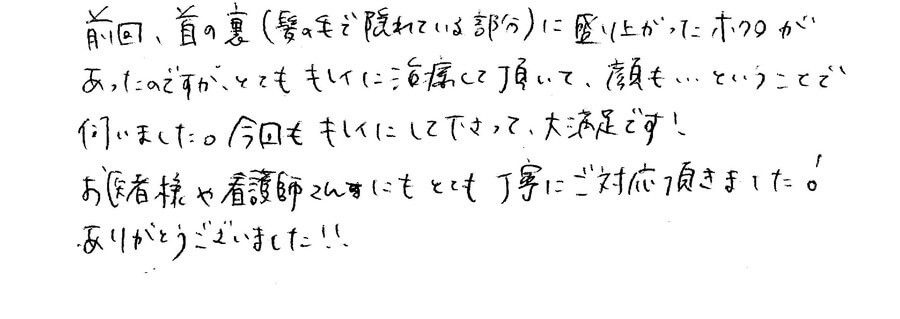 前回、首の裏(髪の毛で隠れている部分)に盛り上がったホクロが
あったのですが、とてもキレイに治療して頂いて、顔も…ということで
伺いました。今回もキレイにして下さって、大満足です!
お医者様や看護師さんにもとても丁寧にご対応頂きました!
ありがとうございました!!